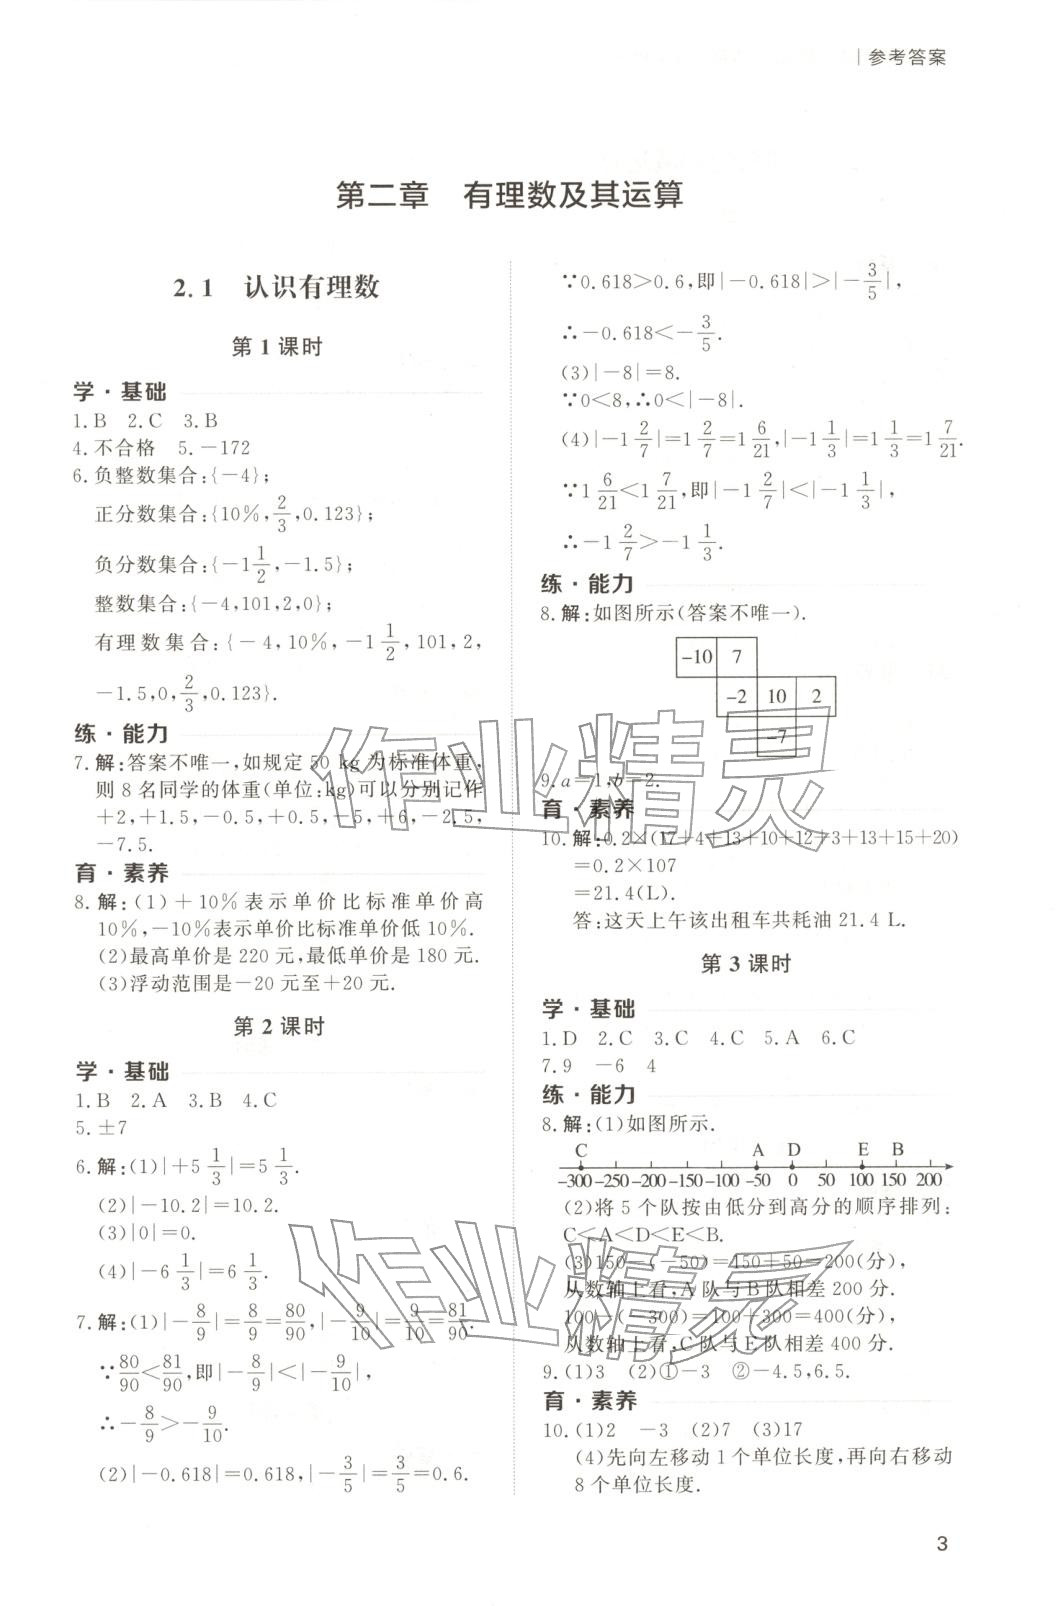 参考答案
第二章 有理数及其运算
2.1 认识有理数
第1课时
学·基础
1.B 2.C 3.B
4.不合格 5.-172
6.负整数集合:{-4};
正分数集合:{10%,2/3,0.123};
负分数集合:{-1 1/2,-1.5};
整数集合:{-4,101,2,0};
有理数集合:{-4,10%,-1 1/2,101,2,
-1.5,0,2/3,0.123}.
练·能力
7.解:答案不唯一,如规定50 kg为标准体重,
则8名同学的体重(单位:kg)可以分别记作
+2,+1.5,-0.5,+0.5,-5,+6,-2.5,
-7.5.
育·素养
8.解:(1)+10%表示单价比标准单价高
10%,-10%表示单价比标准单价低10%.
(2)最高单价是220元,最低单价是180元.
(3)浮动范围是-20元至+20元.
第2课时
学·基础
1.B 2.A 3.B 4.C
5.±7
6.解:(1)|+5 1/3|=5 1/3.
(2)|-10.2|=10.2.
(3)|0|=0.
(4)|-6 1/3|=6 1/3.
7.解:(1)|-8/9|=8/9=80/90,|-9/10|=9/10=81/90.
∵80/90<81/90,即|-8/9|<|-9/10|,
∴-8/9>-9/10.
(2)|-0.618|=0.618,|-3/5|=3/5=0.6.
∵0.618>0.6,即|-0.618|>|-3/5|,
∴-0.618<-3/5.
(3)|-8|=8.
∵0<8,∴0<|-8|.
(4)|-1 2/7|=1 2/7=1 6/21,|-1 1/3|=1 1/3=1 7/21.
∵1 6/21<1 7/21,即|-1 2/7|<|-1 1/3|,
∴-1 2/7>-1 1/3.
练·能力
8.解:如图所示(答案不唯一).
-10 7
-2 10 2
-7
9.a=1,b=2.
育·素养
10.解:0.2×(17+4+13+10+12+3+13+15+20)
=0.2×107
=21.4(L).
答:这天上午该出租车共耗油21.4 L.
第3课时
学·基础
1.D 2.C 3.C 4.C 5.A 6.C
7.9 -6 4
练·能力
8.解:(1)如图所示.
C A D E B
-300 -250 -200 -150 -100 -50 0 50 100 150 200
(2)将5个队按由低分到高分的顺序排列:
C<A<D<E<B.
(3)150-(-50)=150+50=200(分),
从数轴上看,A队与B队相差200分.
100-(-300)=100+300=400(分),
从数轴上看,C队与E队相差400分.
9.(1)3 (2)①-3 ②-4.5,6.5.
育·素养
10.(1)2 -3 (2)7 (3)17
(4)先向左移动1个单位长度,再向右移动
8个单位长度.
3
作业精灵
作业精灵